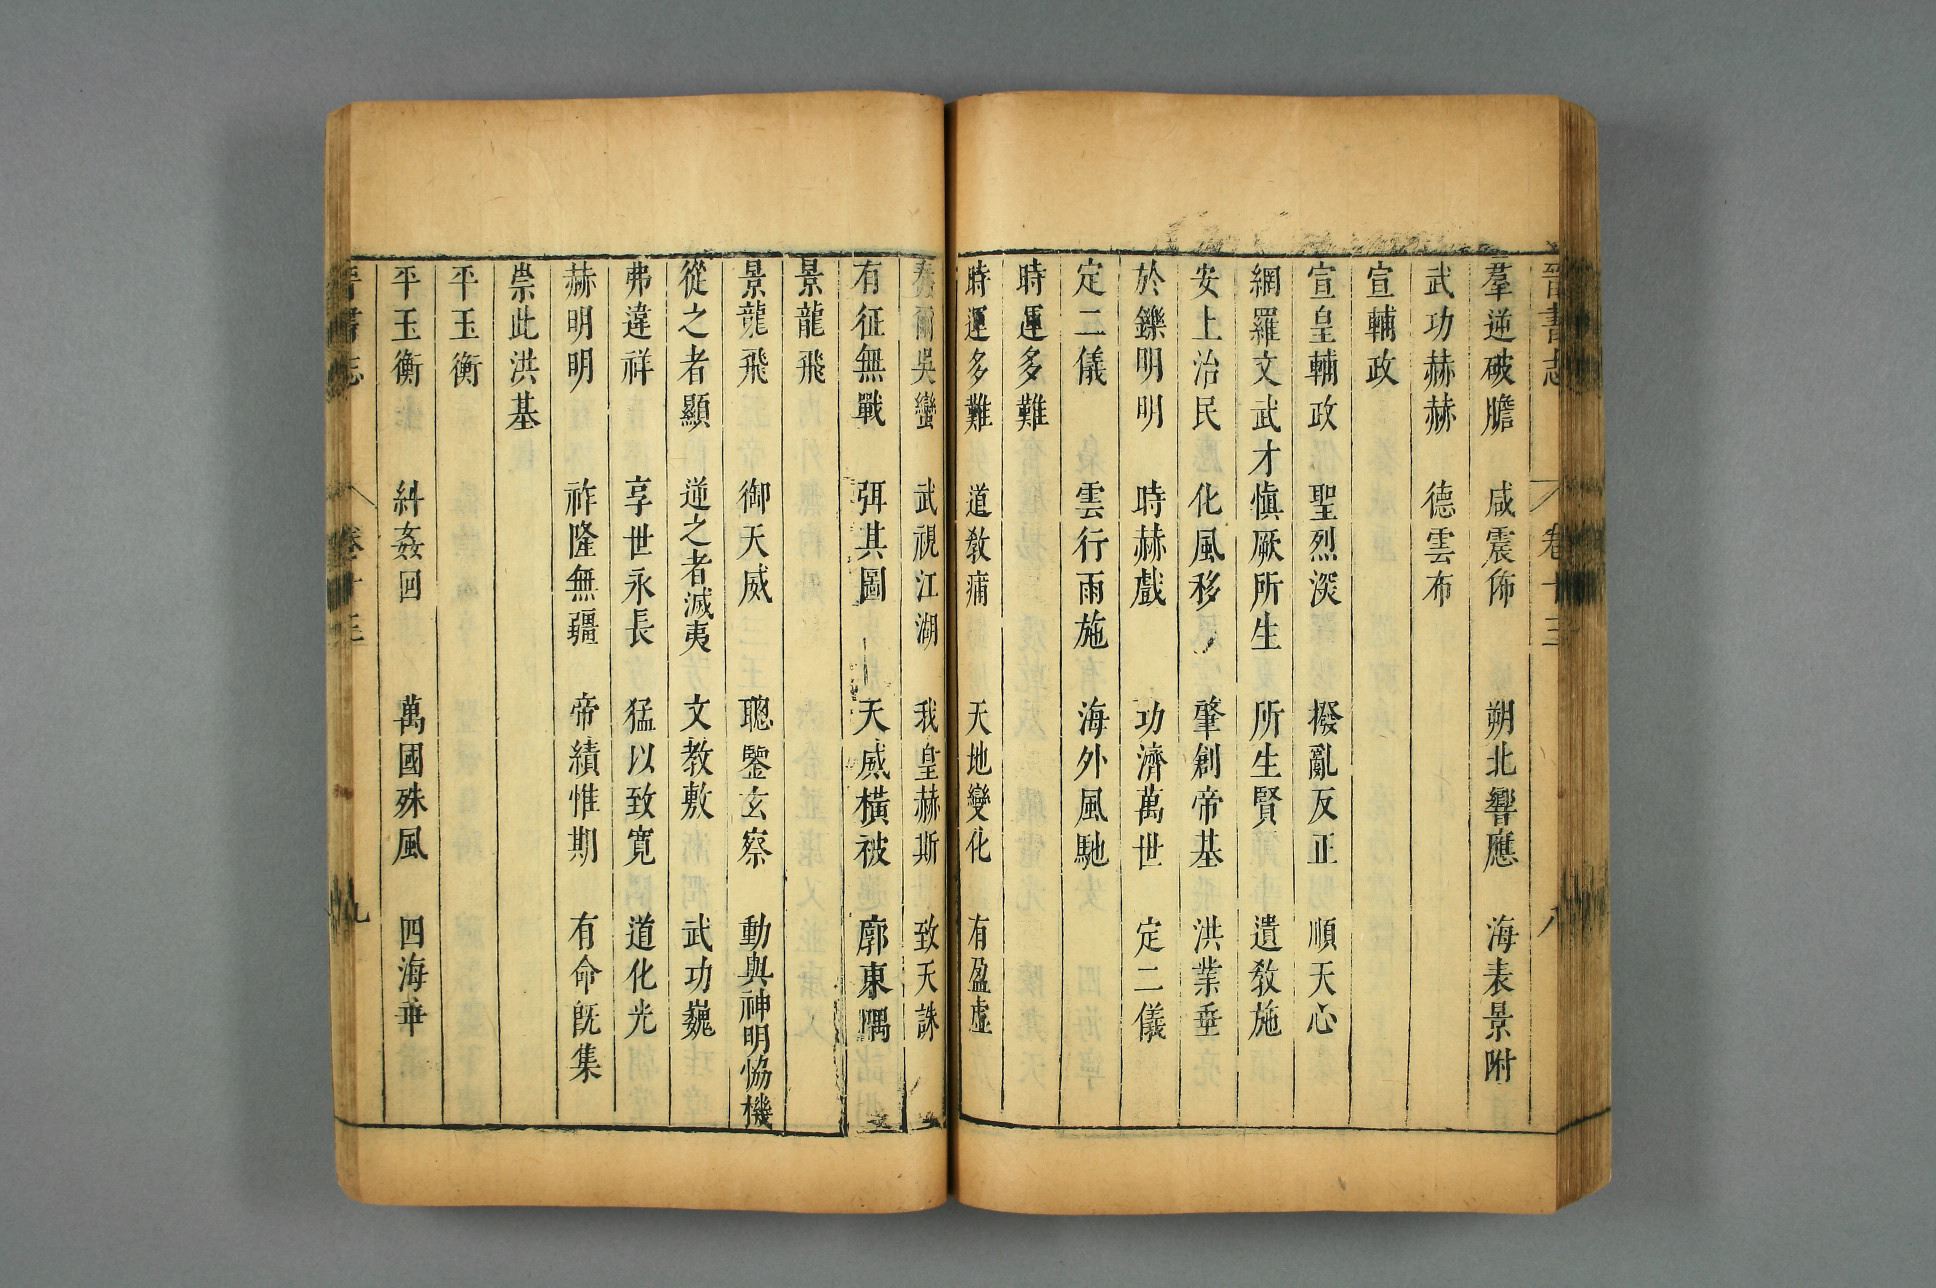 晉書志 卷十三 八
羣逆破膽 咸震怖 朔北響應 海表景附
武功赫赫 德雲布
宣輔政
宣皇輔政 聖烈深 撥亂反正 順天心
網羅文武才愼厥所生 所生賢 遺教施
安上治民 化風移 肇創帝基 洪業垂
於鑠明明 時赫戲 功濟萬世 定二儀
定二儀 雲行雨施 海外風馳
時運多難
時運多難 道敎痡 天地變化 有盈虛
蠢爾吳蠻 武視江湖 我皇赫斯 致天誅
有征無戰 弭其圖 天威橫被 廓東隅
景龍飛
景龍飛 御天威 聰鑒玄察 動與神明協機
從之者顯 逆之者滅夷 文教敷 武功巍
弗違祥 享世永長 猛以致寬 道化光
赫明明 祚隆無疆 帝績惟期 有命旣集
崇此洪基
平玉衡
平玉衡 糾姦回 萬國殊風 四海乖
晉書志 卷十三 九